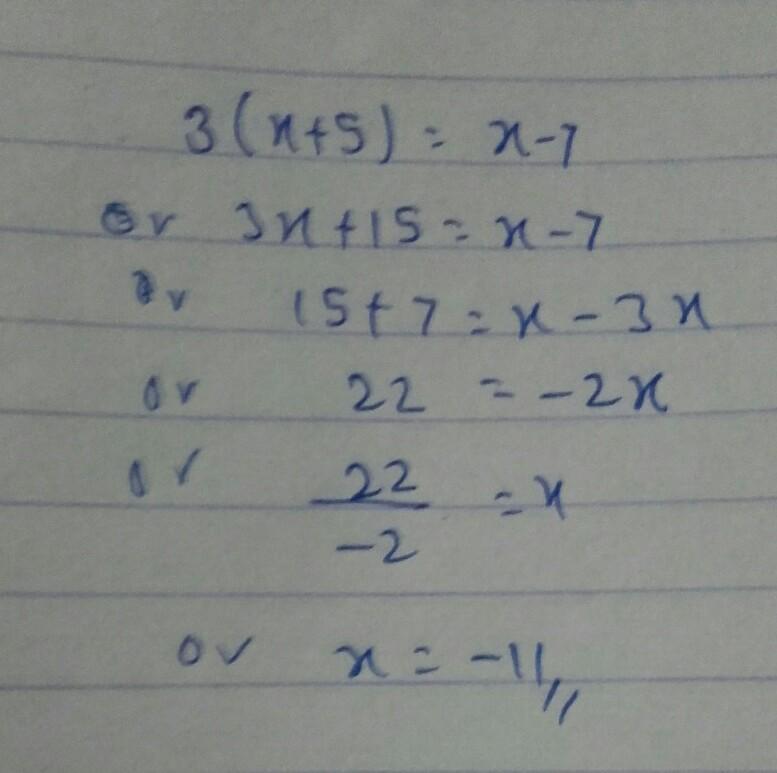 3(x+5) = x-7
or 3x+15 = x-7
or 15+7 = x-3x
or 22 = -2x
or 22/-2 = x
or x = -11//